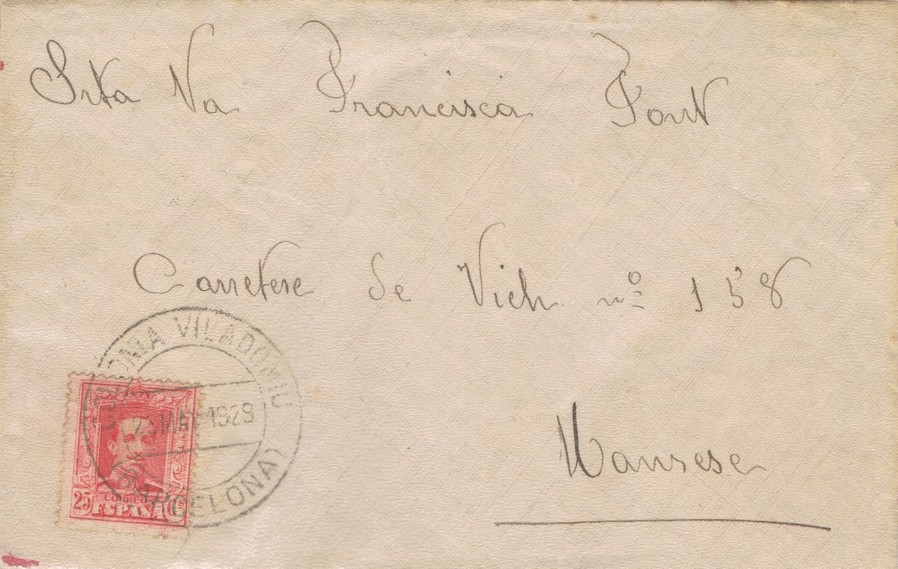 Srta Na Francisca Font
Carretere de Vich nº 158
Manrese
COLONIA VILADOMIU
23 MAY 1929
(BARCELONA)
25 CORREOS
ESPAÑA